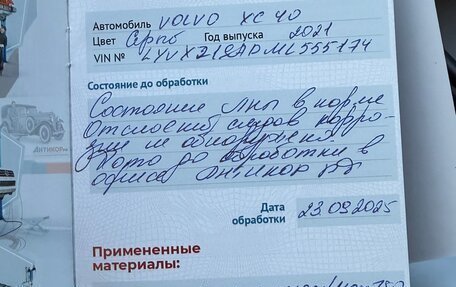 Автомобиль VOLVO XC 40
Цвет Год выпуска 2021
VIN №
Состояние до обработки
Состояние лкп в норме
Отслоений следов корро-
зии не обнаружено
Фото до обработки в
офисе Антикор
АНТИКОР
Дата
обработки 23.09.2025
Применённые
материалы: